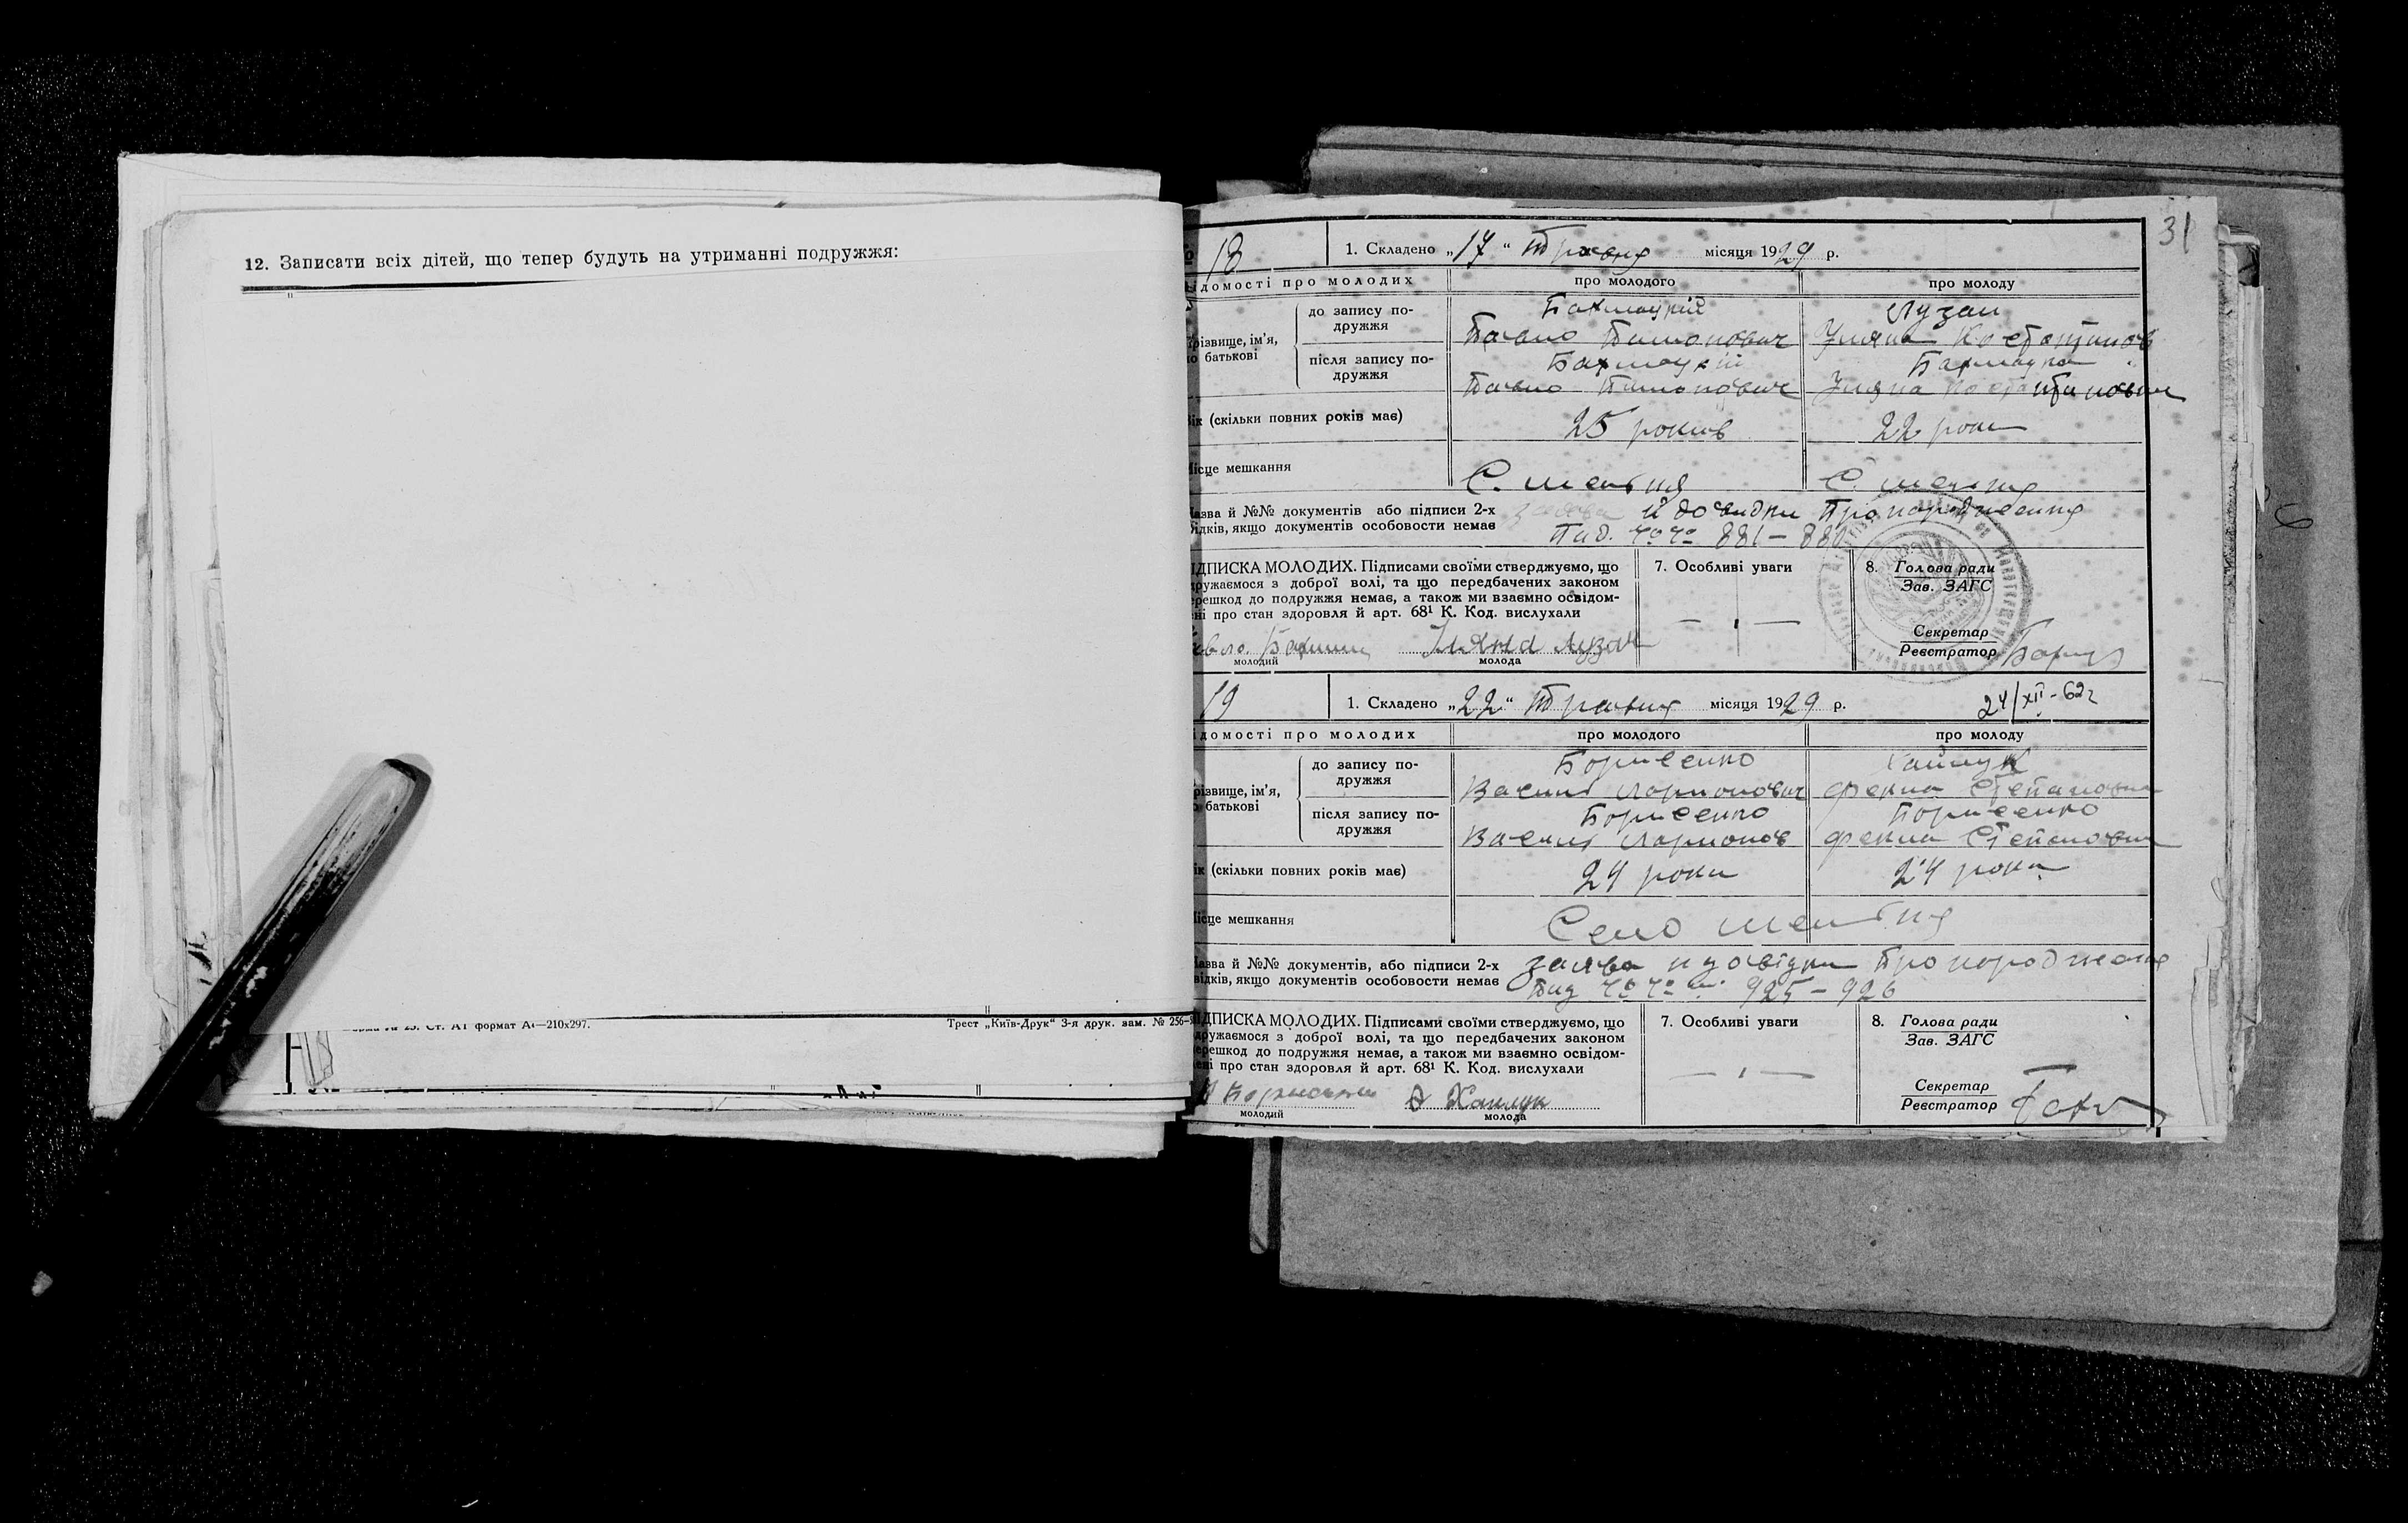 12. Записати всіх дітей, що тепер будуть на утриманні подружжя:
Ст. А1 формат А—210х297.
Трест „Київ-Друк“ 3-я друк. зам. № 256—
31
18
1. Складено „17“ Травня місяця 1929 р.
ідомості про молодих
про молодого
про молоду
різвище, ім'я,
о батькові
до запису по-
дружжя
Бахмацкій
Павло Тимонович
Лузан
Уляна Костантинов
після запису по-
дружжя
Бахмацкій
Павло Тимонович
Бахмацка
Уляна Костантиновна
ік (скільки повних років має)
25 роков
22 роки
ісце мешкання
С. Шевьня
С. Шевьня
азва й №№ документів або підписи 2-х
ідків, якщо документів особовости немає
й довидки про народження
Пид. №№ 881 — 880
ІДПИСКА МОЛОДИХ. Підписами своїми стверджуємо, що
дружаємося з доброї волі, та що передбачених законом
ерешкод до подружжя немає, а також ми взаємно освідом-
ені про стан здоровля й арт. 68¹ К. Код. вислухали
молодий
Уляна Лузан
молода
7. Особливі уваги
8. Голова ради
Зав. ЗАГС
Секретар
Реєстратор
19
1. Складено „22“ Травня місяця 1929 р.
24/XII-62 г
ідомості про молодих
про молодого
про молоду
різвище, ім'я,
о батькові
до запису по-
дружжя
Борисенко
Василь Ларионович
Хайлук
Фекла Степановна
після запису по-
дружжя
Борисенко
Василь Ларионов
Борисенко
Фекла Степановна
ік (скільки повних років має)
24 роки
24 роки
ісце мешкання
Село
азва й №№ документів, або підписи 2-х
ідків, якщо документів особовости немає
заява и довідки про народження
Пид №№ 925 — 926
ІДПИСКА МОЛОДИХ. Підписами своїми стверджуємо, що
дружаємося з доброї волі, та що передбачених законом
ерешкод до подружжя немає, а також ми взаємно освідом-
ені про стан здоровля й арт. 68¹ К. Код. вислухали
молодий
Хаилук
молода
7. Особливі уваги
8. Голова ради
Зав. ЗАГС
Секретар
Реєстратор